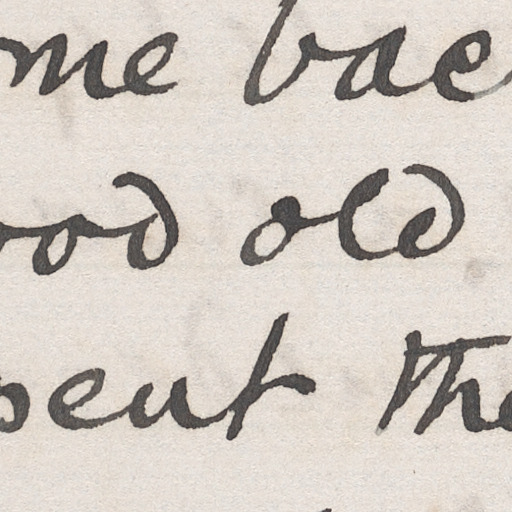 me bac
ood old
pent the